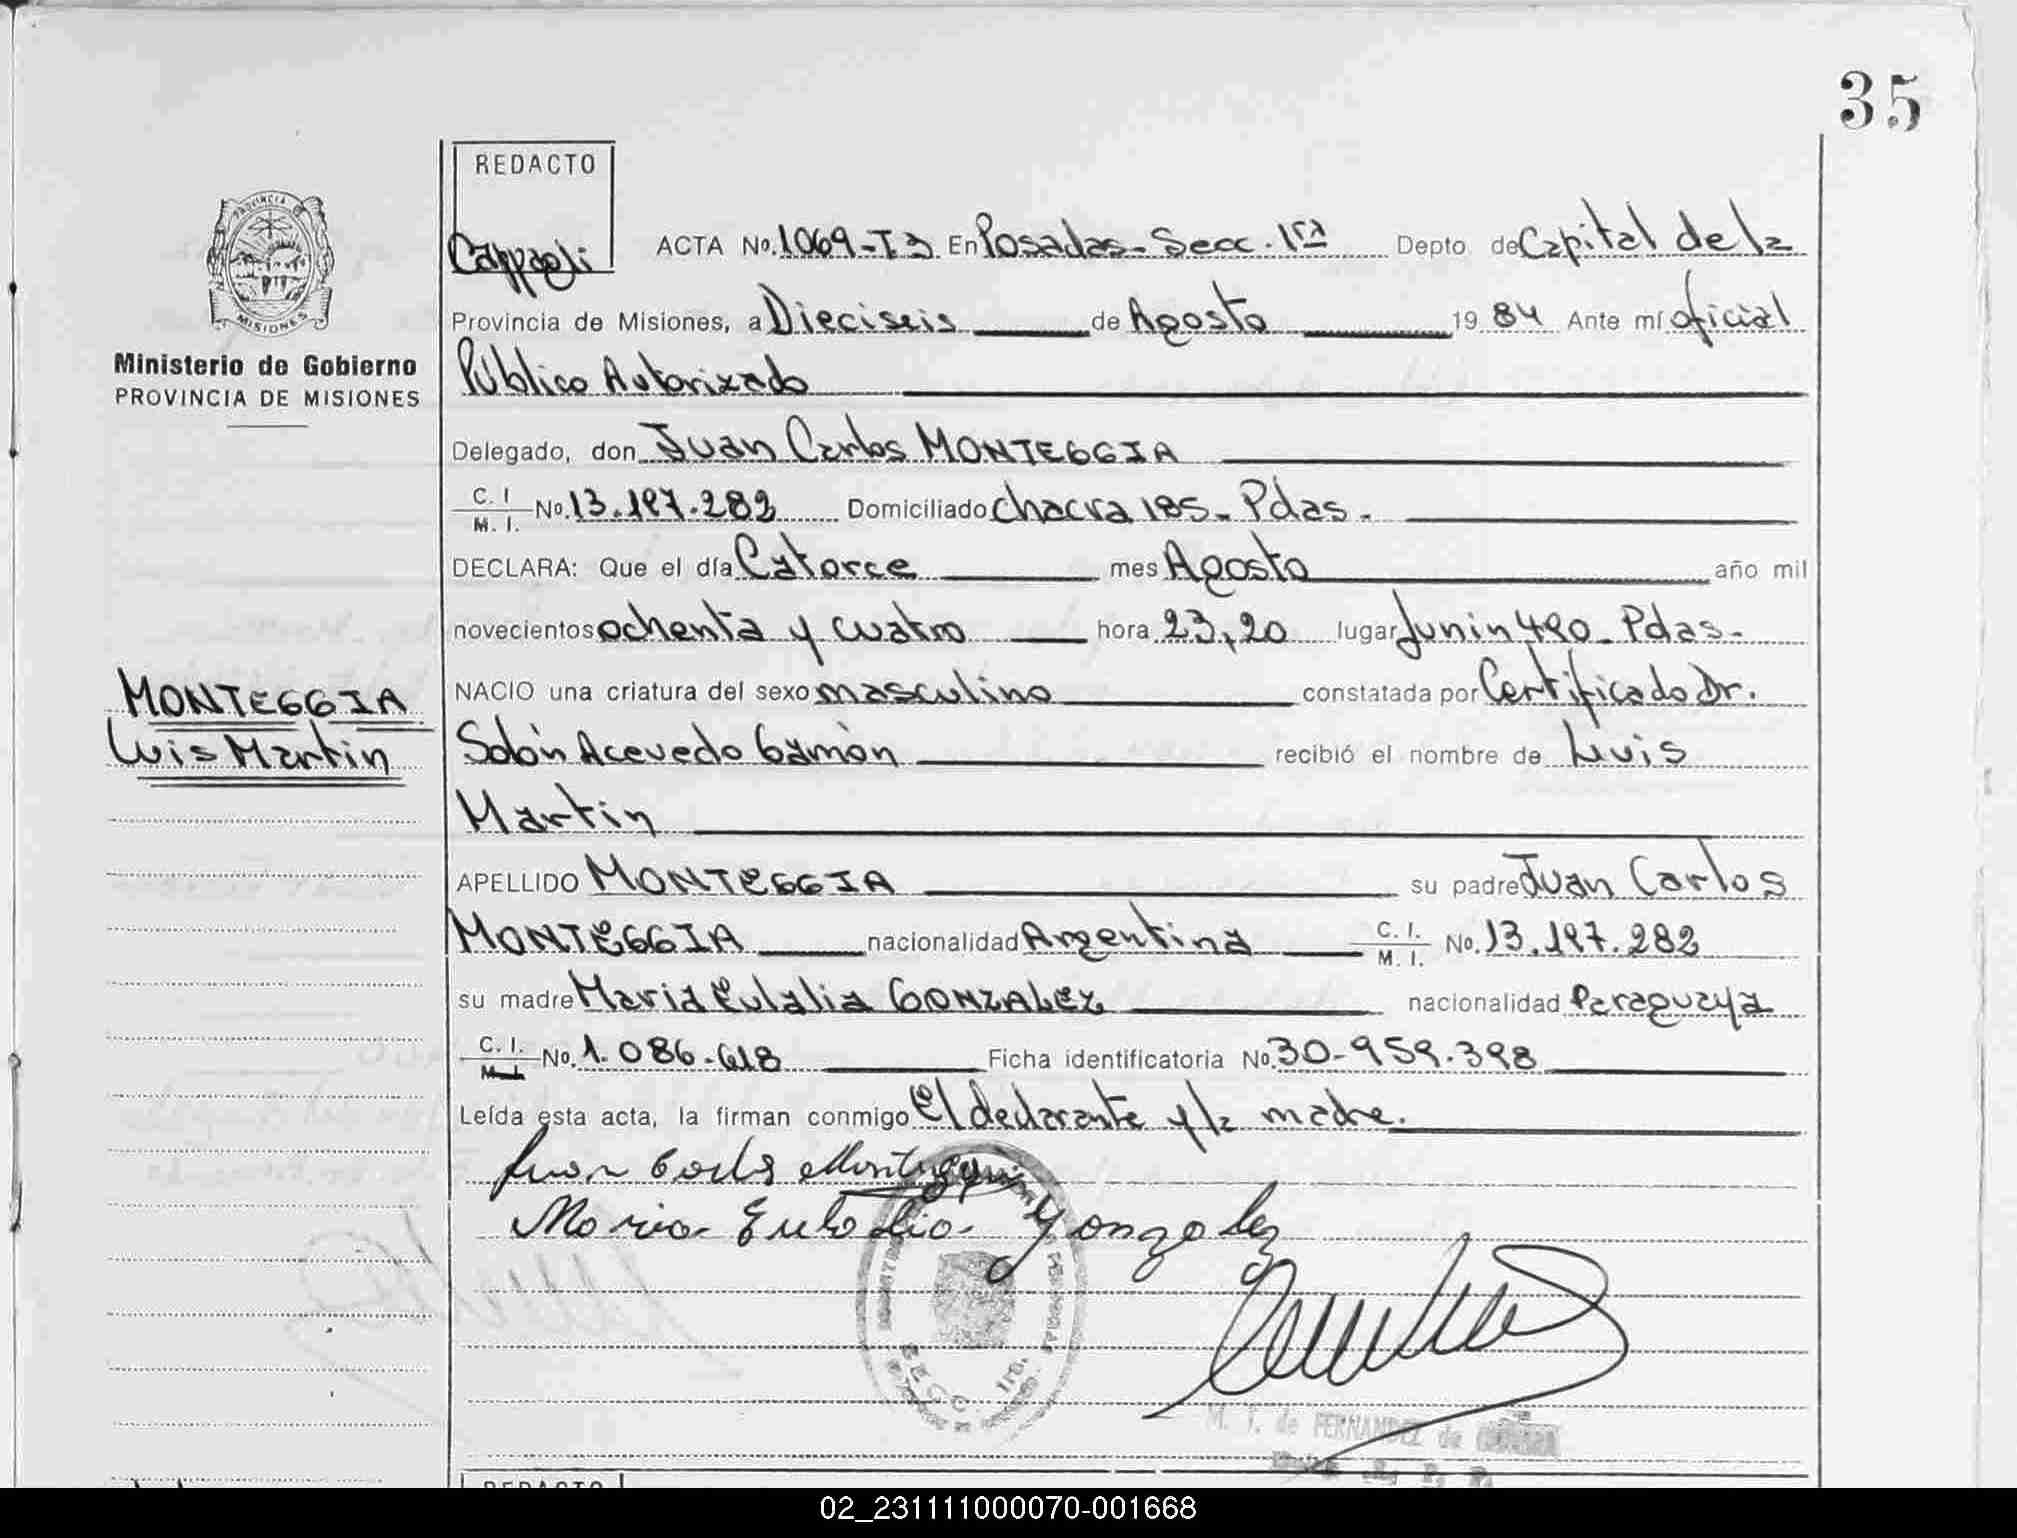 35
REDACTO
PROVINCIA DE
MISIONES
Ministerio de Gobierno
PROVINCIA DE MISIONES
MONTEGGIA
Luis Martin
ACTA No. 1069-T3 En Posadas - Secc. 1ra Depto de Capital de la
Provincia de Misiones, a Dieciseis de Agosto 19 84 Ante mí oficial
Público Autorizado
Delegado, don Juan Carlos MONTEGGIA
C. I. M. I. No. 13.197.282 Domiciliado chacra 185 - Pdas.
DECLARA: Que el día Catorce mes Agosto año mil
novecientos ochenta y cuatro hora 23,20 lugar Junin 490 - Pdas.
NACIO una criatura del sexo masculino constatada por Certificado Dr.
Solón Acevedo Gamón recibió el nombre de Luis
Martin
APELLIDO MONTEGGIA su padre Juan Carlos
MONTEGGIA nacionalidad Argentina C. I. M. I. No. 13.197.282
su madre Maria Eulalia GONZALEZ nacionalidad Paraguaya
C. I. M. I. No. 1.086.618 Ficha identificatoria No. 30-959.398
Leída esta acta, la firman conmigo El declarante y la madre.
Juan Carlos Monteggia
Maria Eulalia Gonzalez
M. T. de FERNANDEZ de
REDACTO
02_231111000070-001668